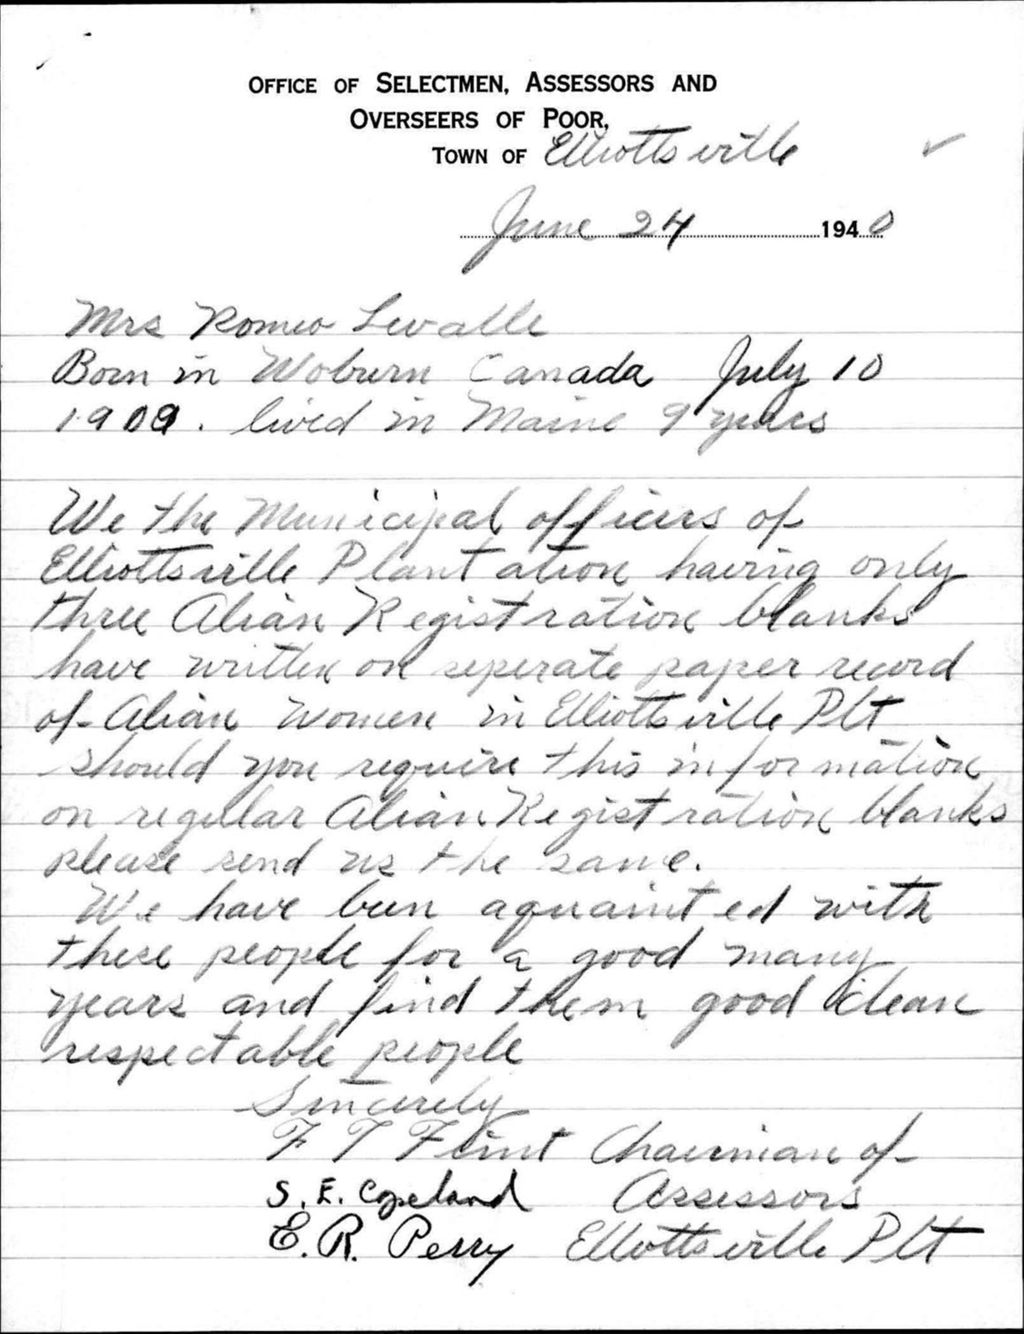 OFFICE OF SELECTMEN, ASSESSORS AND
OVERSEERS OF POOR,
TOWN OF Elliottsville
June 24 1940
Mrs Romeo Levalle
Born in Woburn Canada July 10
1909. lived in Maine 9 years
We the Municipal officers of
Elliottsville Plantation having only
three Alian Registration blanks
have written on seperate paper record
of Alian women in Elliottsville Plt
should you require this information
on regular Alian Registration blanks
please send us the same.
We have been aquainted with
these people for a good many
years and find them good clean
respectable people
Sincerely
F T Flint Chairman of
S. E. Copeland Assessors
E. R. Perry Elliottsville Plt